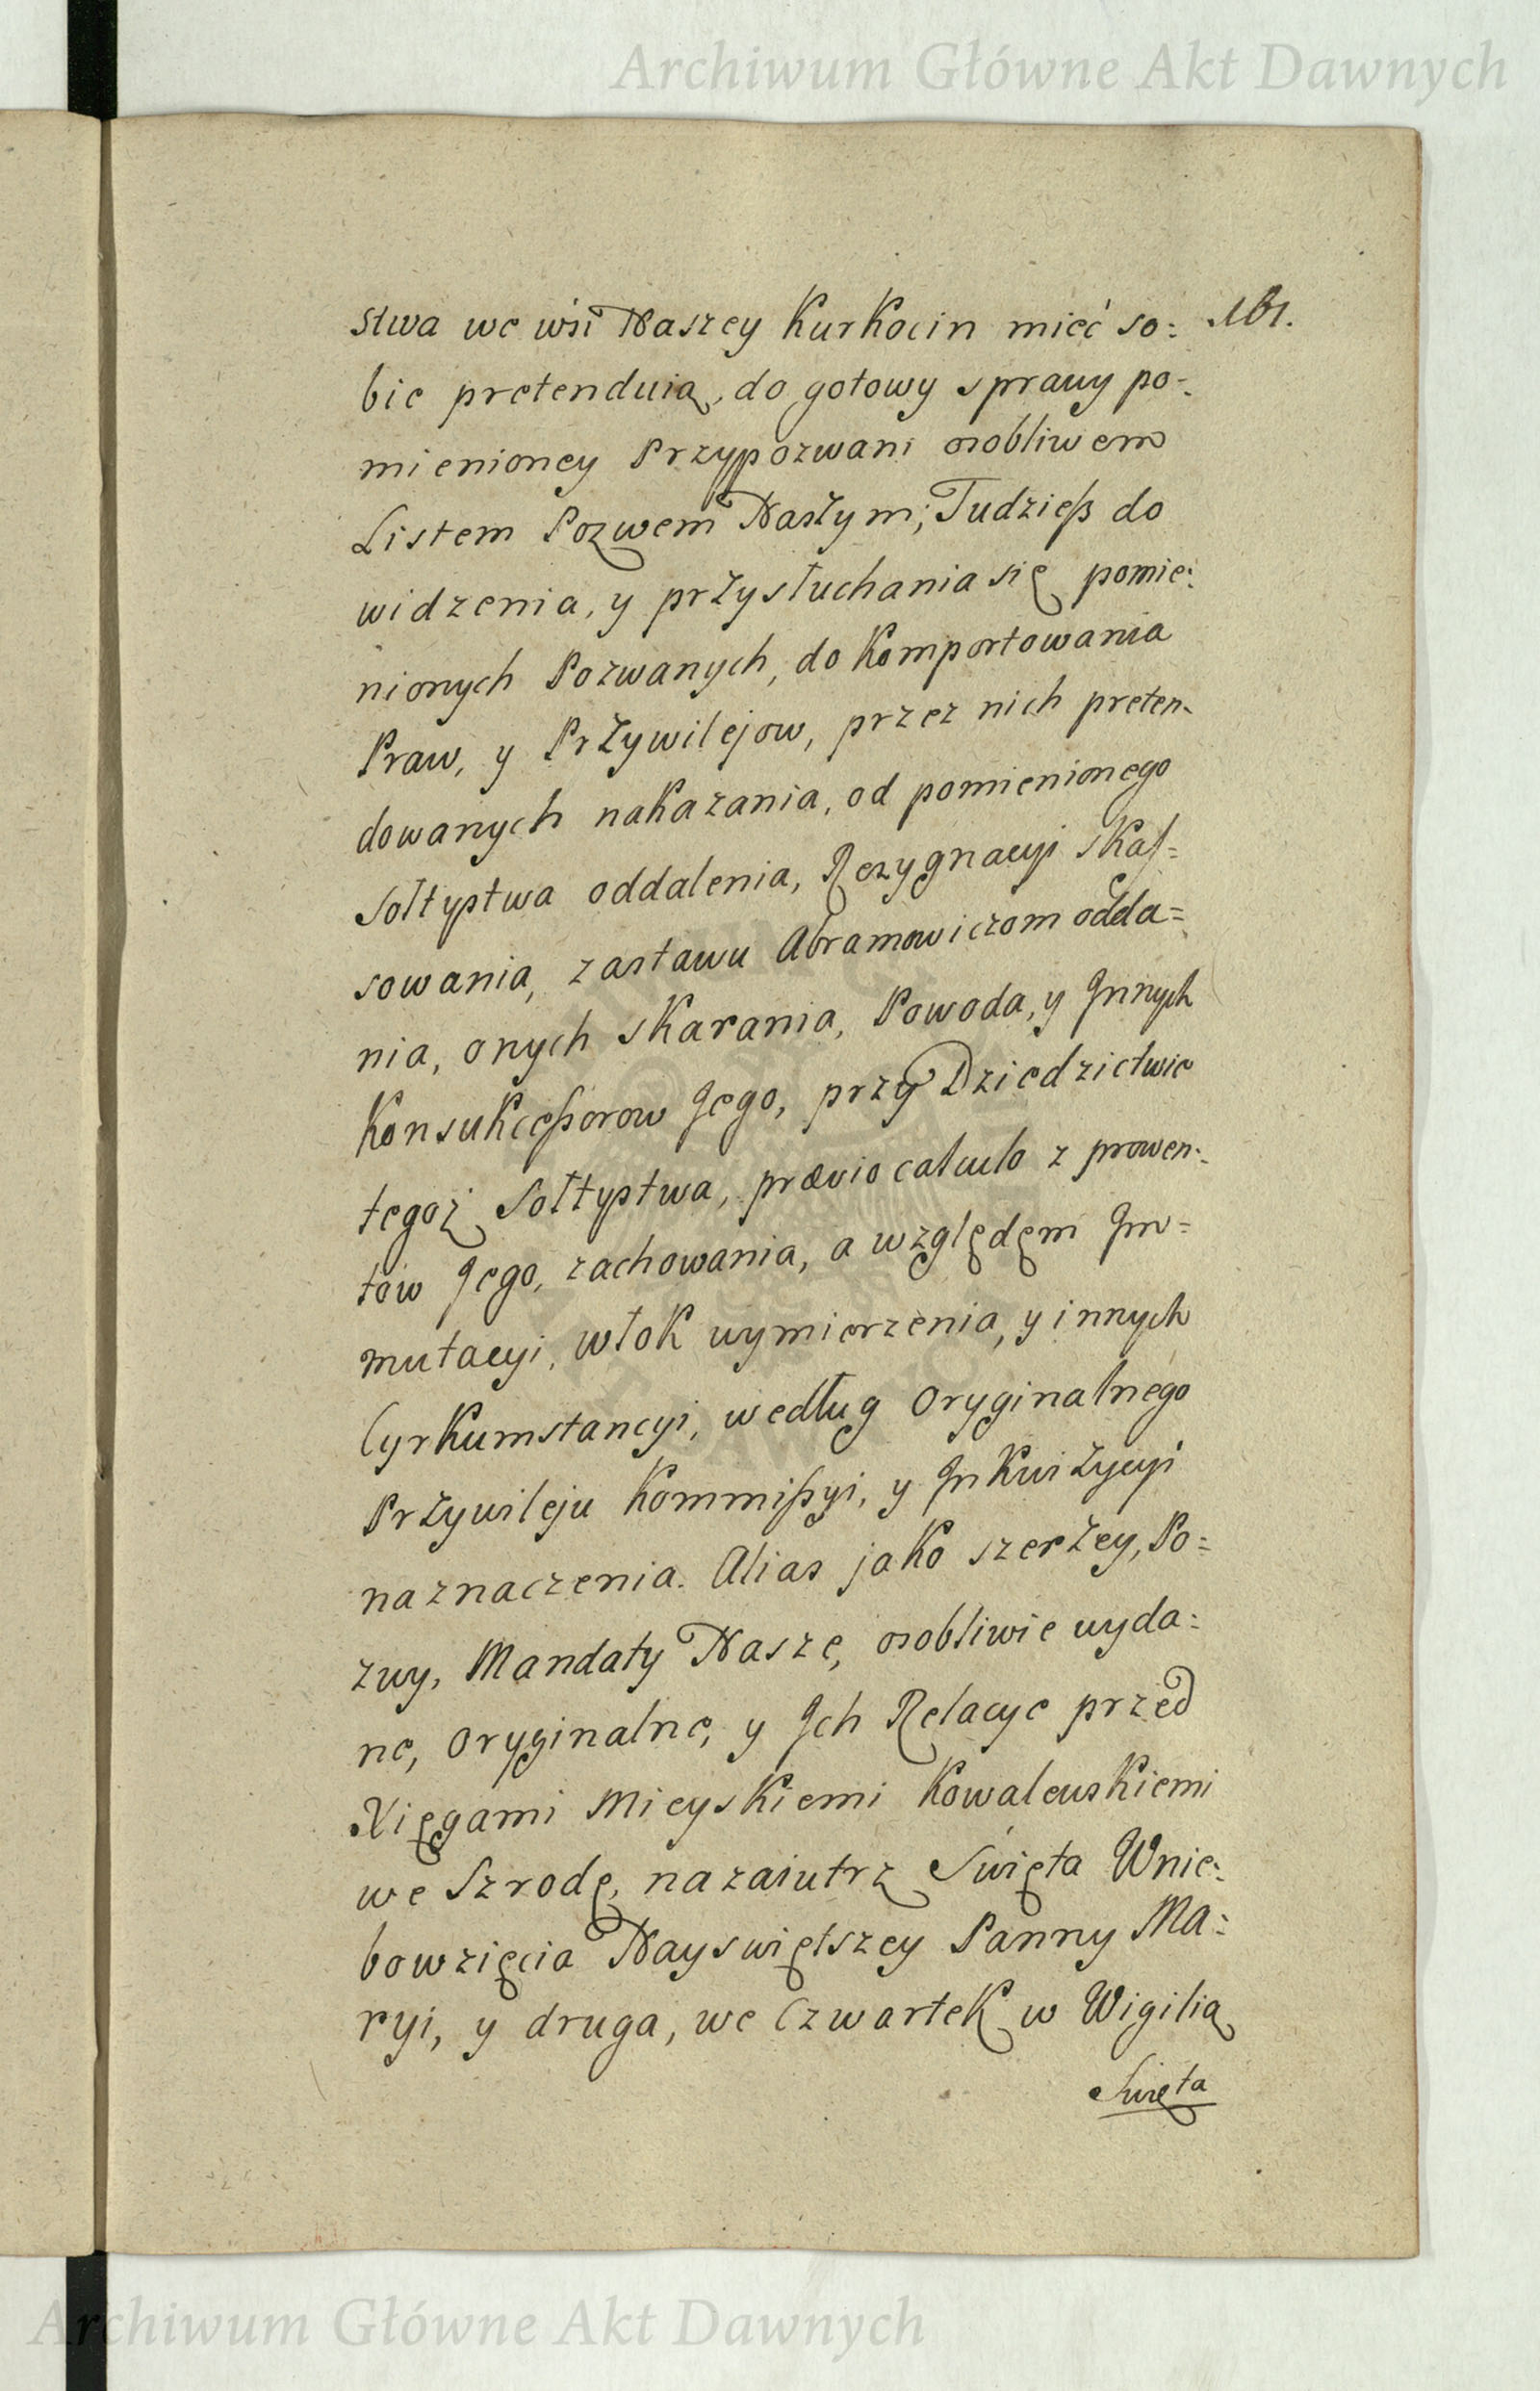 Archiwum Główne Akt Dawnych
stwa we wsi Naszey Kurkocin mieć so: 161.
bie pretenduią, do gotowy sprawy po-:
mienioney Przypozwani osobliwem
Listem Pozwem Naszym; Tudzieß do
widzenia, y przysłuchania się pomie:
nionych Pozwanych, do Komportowania
Praw, y Przywilejow, przez nich preten-
dowanych nakazania, od pomienionego
Sołtystwa oddalenia, Rezygnacyi skas=
sowania, zastawu Abramowiczom odda=
nia, onych skarania, Powoda, y Jnnych
Konsukceßorow Jego, przy Dziedzictwie
tegoż Sołtystwa, prævio calculo z prowen-:
tow Jego, zachowania, a względem Jm=
mutacyi, włok wymierzenia, y innych
Cyrkumstancyi, według Oryginalnego
Przywileju Kommißyi, y Jnkwizycyi
naznaczenia. Alias jako szerzey, Po=
zwy, Mandaty Nasze, osobliwie wyda:
ne, Oryginalne, y Jch Relacye przed
Xięgami Mieyskiemi Kowalewskiemi
we Szrodę, nazaiutrz Swięta Wnie:
bowzięcia Nayswiętszey Panny Ma:
ryi, y druga, we Czwartek w Wigilią
Swięta
Archiwum Główne Akt Dawnych